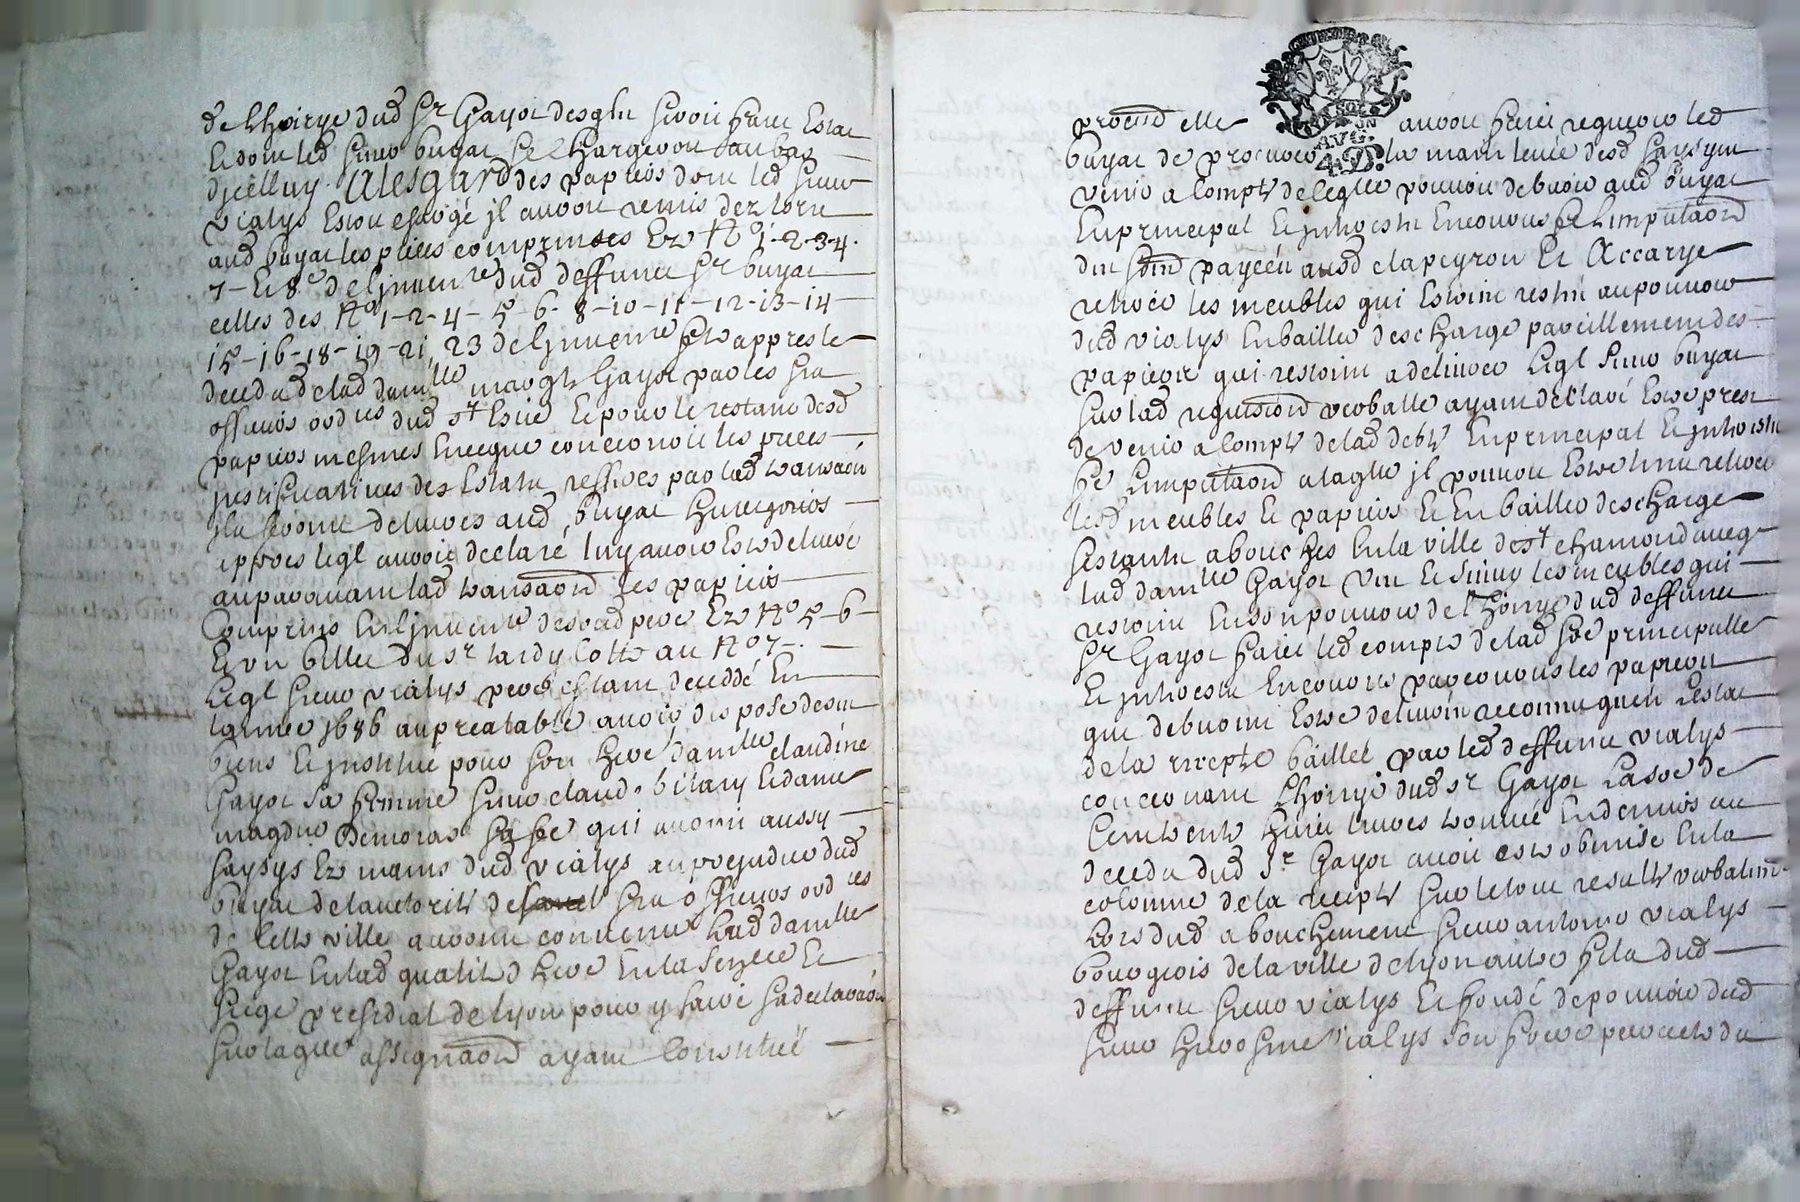 de lhoirye dud Sr Gayot desqlz seroit faict Estat
Et dont led sieur buyat se chargeroit au bas
dicelluy. Alesgard des papiers dont led sieur
vialys Estoit chargé il auroit remis dez lors
aud buyat les pieces comprinses Ez No 1-2-3-4.
7- Et 8e de linventre dud deffunct Sr buyat
celles des No 1-2-4-5-6-8-10-11-12-13-14
15-16-18-19-21 23 de linventre faict appres le
deced de lad damlle margte Gayot par les sra
officiers ordres dud st Esne Et pour le restant desd
papiers mesmes Encequi concernoit les pieces
justificatives des Estatz reffers par lad transaon
ils seroint delivres aud buyat
appres leql auroit declaré luy avoir Este delivré
auparavant lad transaon les papiers
Comprins En linventre desond pere Ez No 5-6-
Et un billet du sr tardy Cotte au No 7-.
Leql sieur vialys pere estant deceddé En
lannee 1686 au preatable avoir dispose de ses
biens Et institue pour son here damlle claudine
Gayot sa femme sieur claude bilary Et dame
magdne Demoras sa fe qui auroint aussy
saysys Ez mains dud vialys au prejudice dud
buyat de lautorite de sra officiers ordres
de cette ville auroint convenu lad damlle
Gayot En lad qualité dhere En la senecee Et
siege presidial de lyon pour y faire sa declaraon
sur laqlle assignaon ayant Constitué
procurr elle auroit faict requerir led
buyat de procurer la main levée desd saysyes
venir a Compte de ce quil pouvoit debvoir aud buyat
En principal Et intherestz Encourus se limputaon
din payeéu ausd clapeyron Et Accarye
retirer les meubles qui Estoint restés au pouvoir
dud vialys En bailler descharge pareillement des
papiers qui restoint a delivrer Leql sieur buyat
sur lad requisition verballe ayant declaré Estre prest
de venir a Compte de lad debte En principal Et intherestz
se limputaon a laqlle il pourroit Estre tenu retirer
lesd meubles Et papiers Et En bailler descharge
sestants abouches En la ville de st chamond avecq
lad damlle Gayot veu Et suivy les meubles qui
restoint En son pouvoir de lhoirye dud deffunct
Sr Gayot faict led compte de lad soe principalle
Et intherestz Encourus parcourus les papiers
qui debvoint Estre delivrés recognu quen lestat
de la recepte baillet par led deffunct vialys
concernant lhoirye dud sr Gayot La soe de
Cent trente huict livres trouvée En deniers au
deced dud Sr Gayot avoit este obmise En la
colomne de la recepte sur le tout resulte verbalemt
Lors dud abouchement sieur antoine vialys
bourgeois de la ville de lyon autre filz dud
deffunct sieur vialys Et fondé de pouvoir dud
sieur hierosme vialys son frere par acte du